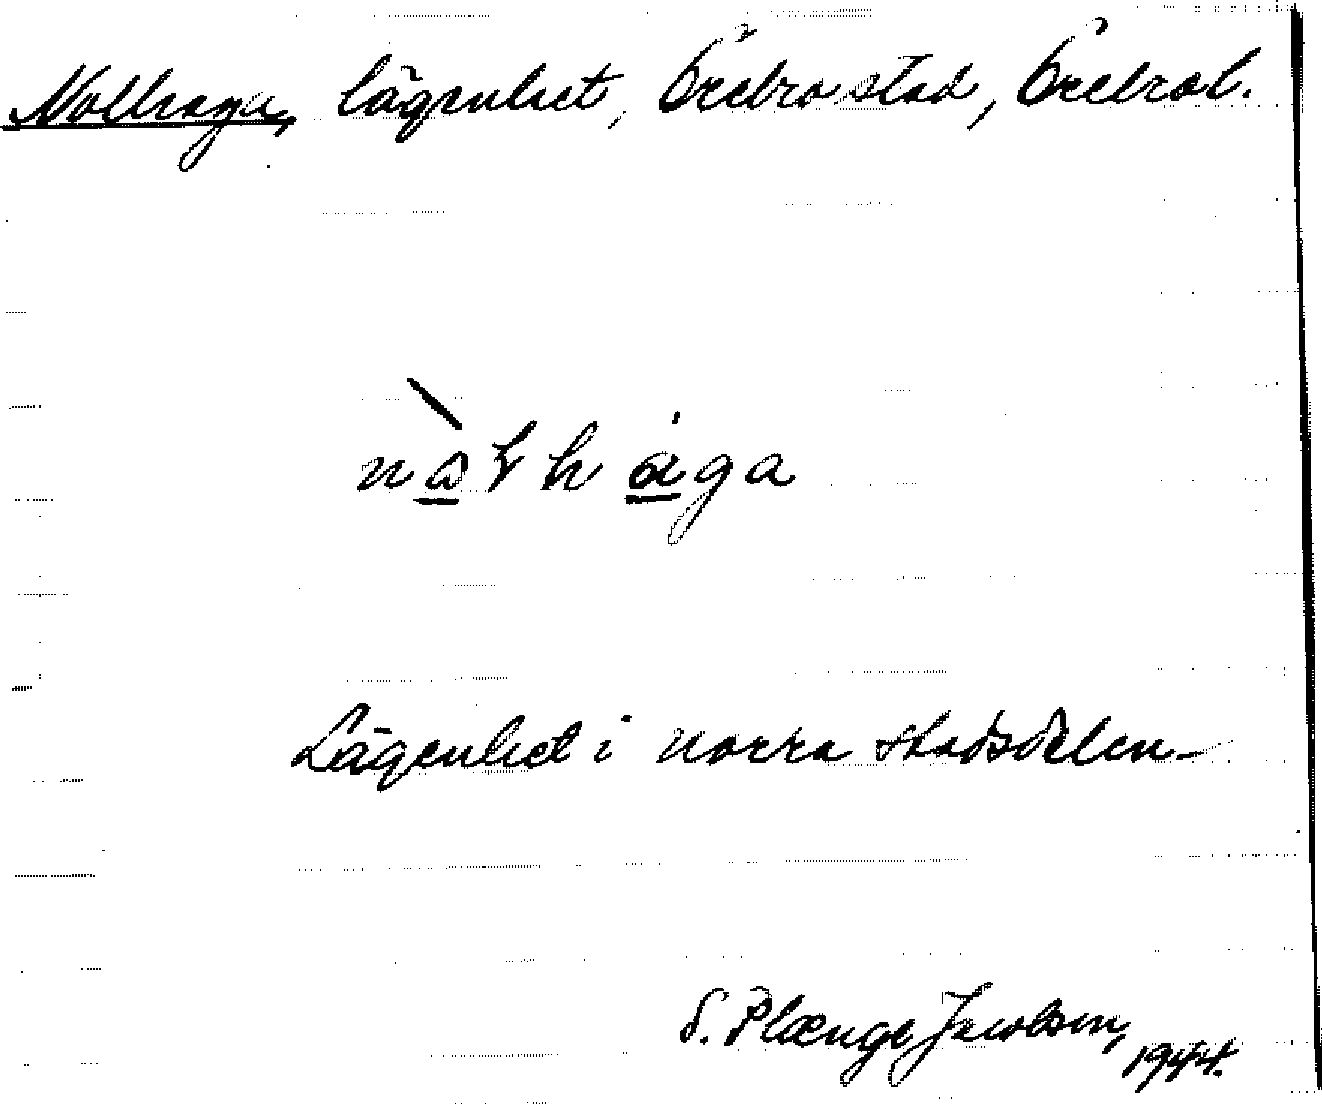 Nolhaga, lägenhet, Örebro stad, Örebro l.
nåłhåga
Lägenhet i norra stadsdelen
S. Plænge Jacobson,
1944.